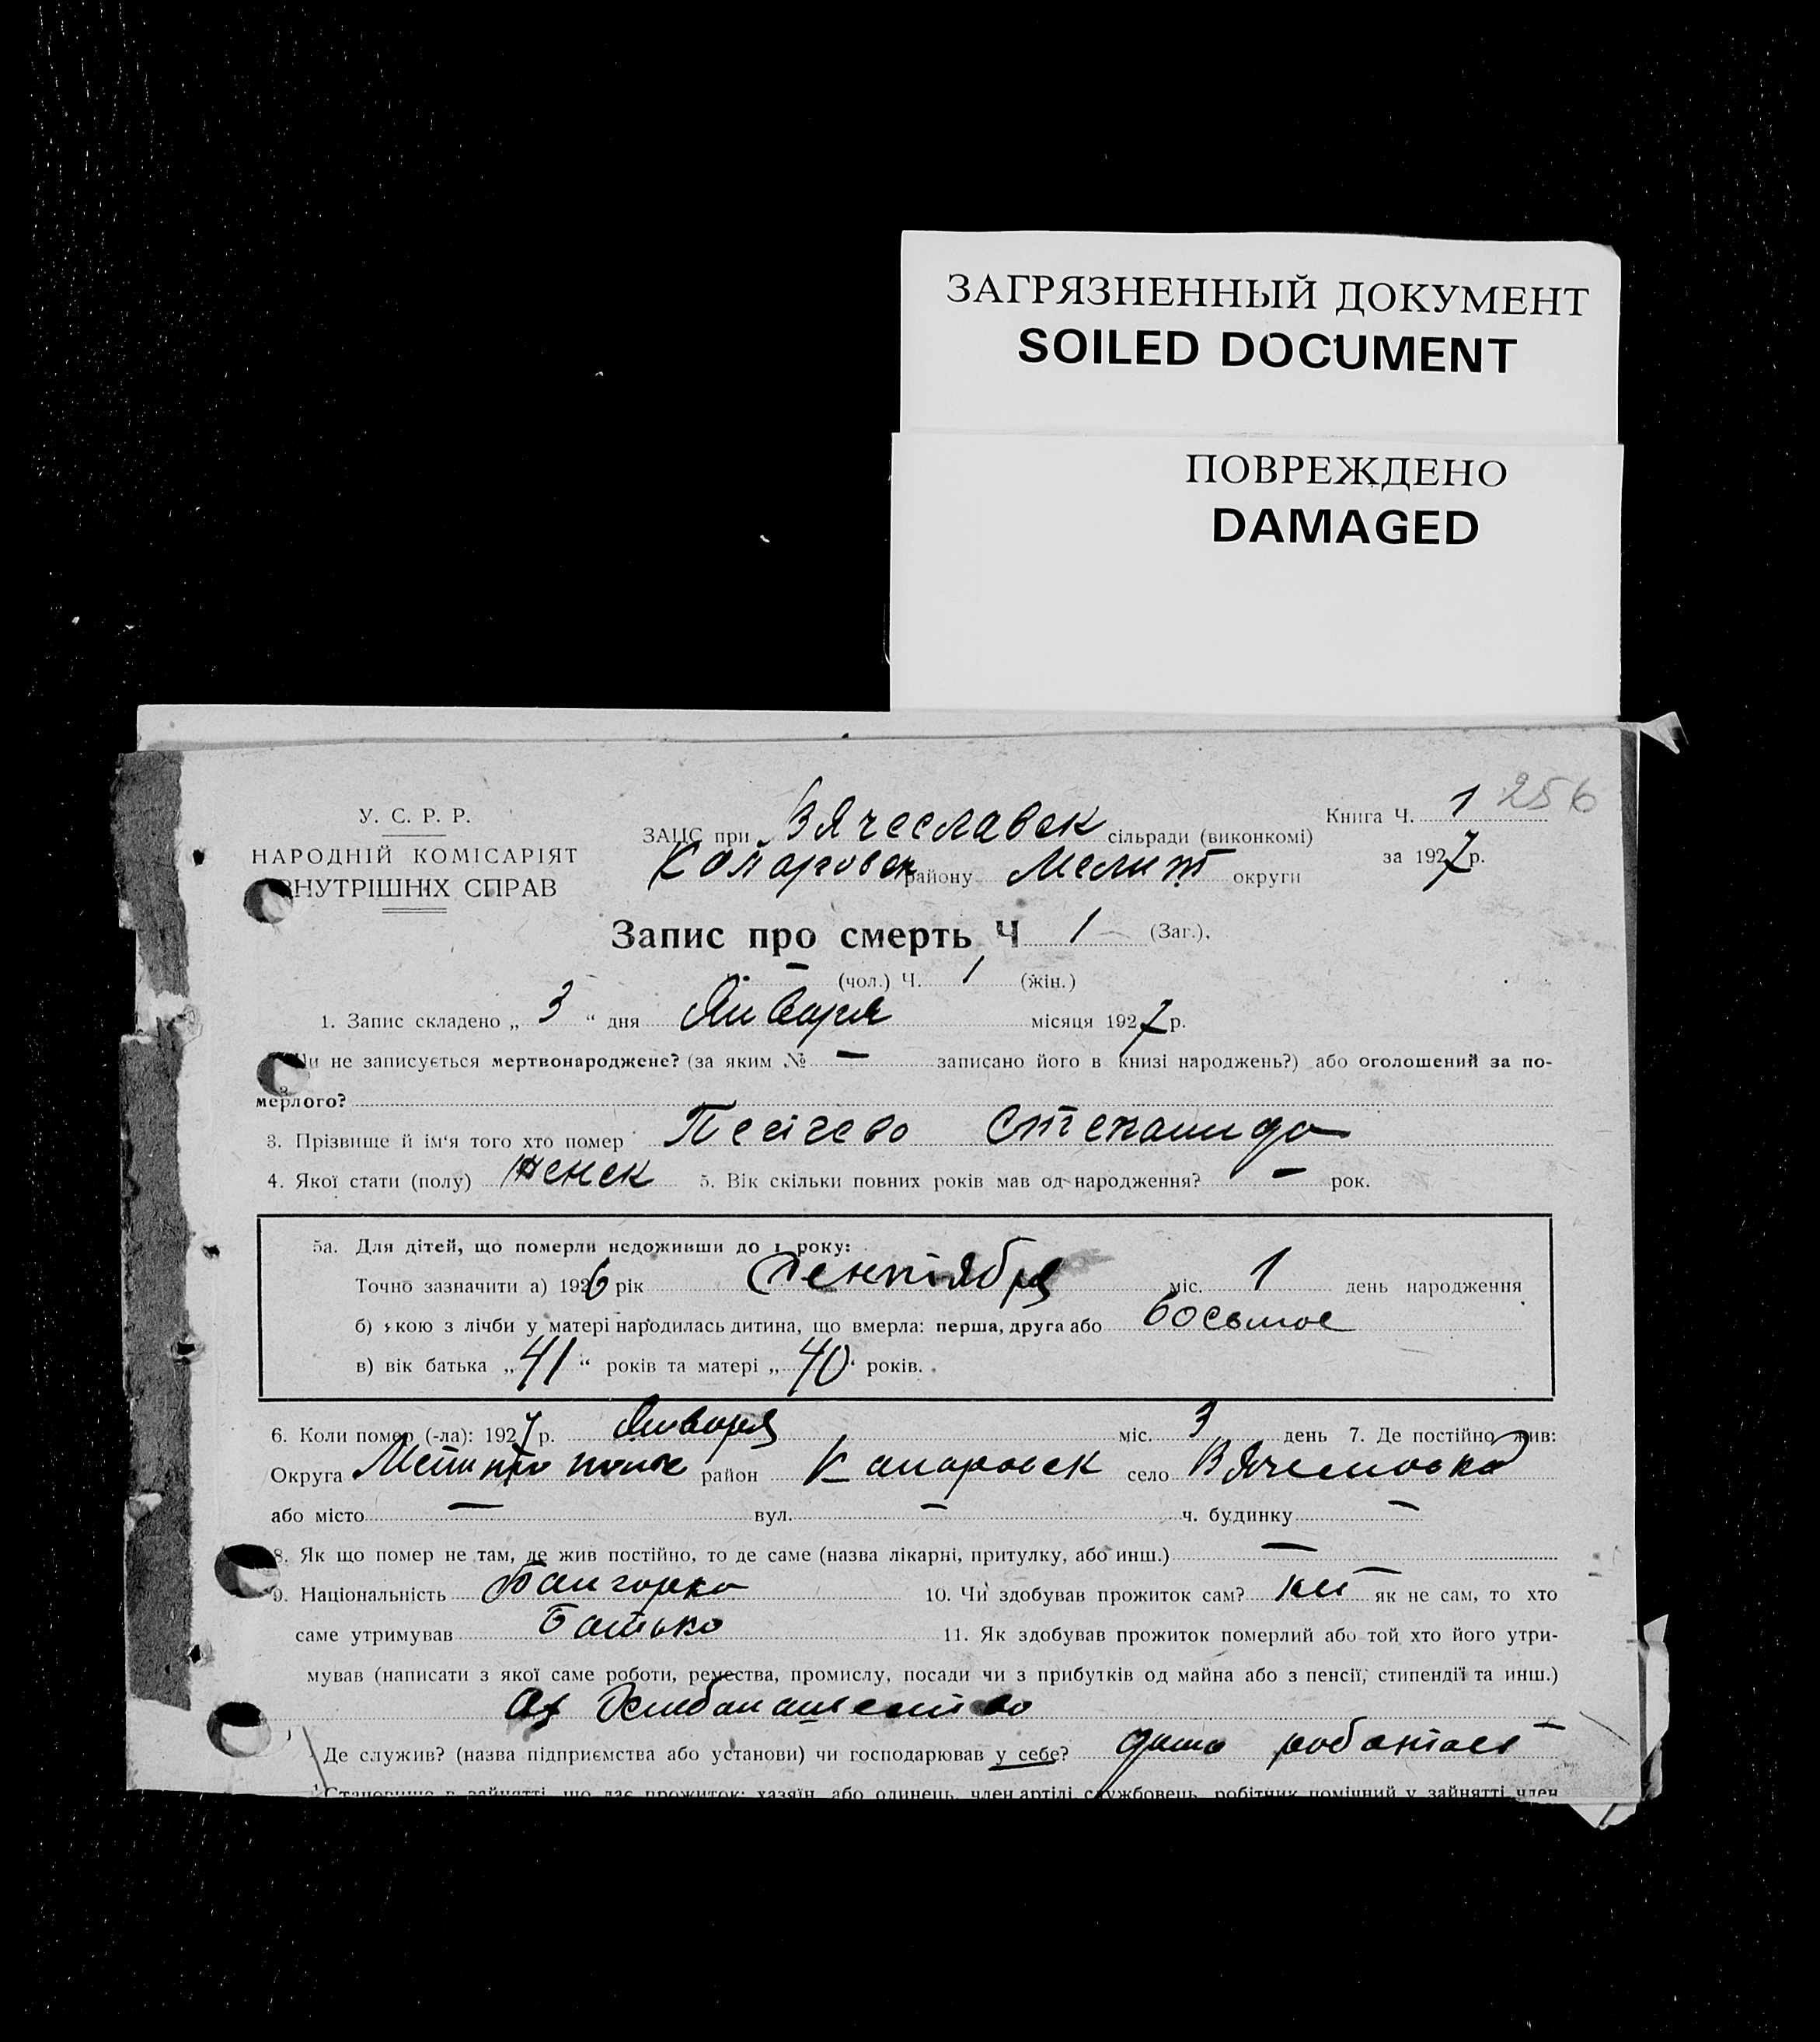 ЗАГРЯЗНЕННЫЙ ДОКУМЕНТ
SOILED DOCUMENT
ПОВРЕЖДЕНО
DAMAGED
У. С. Р. Р.
НАРОДНІЙ КОМІСАРІЯТ
ВНУТРІШНІХ СПРАВ
ЗАЦС при Вячеславск сільради (виконкомі)
району Мелит округи
Книга Ч. 1 256
за 1927 р.
Запис про смерть Ч 1 (Заг.).
— (чол.) Ч. 1 (жін.)
1. Запис складено „ 3 “ дня Января місяця 1927 р.
не записується мертвонароджене? (за яким № — записано його в книзі народжень?) або оголошений за по-
мерлого?
3. Прізвище й ім‘я того хто помер Стеканида
4. Якої стати (полу) женск 5. Вік скільки повних років мав од народження? — рок.
5а. Для дітей, що померли недоживши до 1 року:
Точно зазначити а) 1926 рік Сентября міс. 1 день народження
б) якою з лічби у матері народилась дитина, що вмерла: перша, друга або восьмое
в) вік батька „ 41 “ років та матері „ 40 “ років.
6. Коли помер (-ла): 1927 р. Января міс. 3 день 7. Де постійно жив:
Округа район село
або місто — вул. — ч. будинку —
8. Як що помер не там, де жив постійно, то де саме (назва лікарні, притулку, або инш.) —
9. Національність Балгарка 10. Чи здобував прожиток сам? як не сам, то хто
саме утримував Батько 11. Як здобував прожиток померлий або той хто його утри-
мував (написати з якої саме роботи, ремества, промислу, посади чи з прибутків од майна або з пенсії, стипендії та инш.)
Де служив? (назва підприємства або установи) чи господарював у себе?
Становище в зайнятті, що дає прожиток: хазяїн, або одинець, член артілі службовець, робітник помічний у зайнятті член